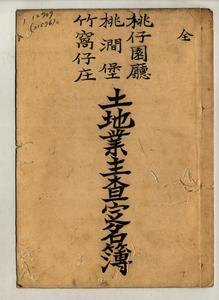 全
桃仔園廳
桃澗堡
竹窩仔庄
土地業主查定名簿